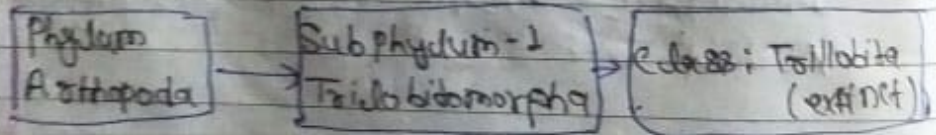 Phylum
Arthopoda
Subphylum-1
Trilobitomorpha
Class: Trillobita
(extinct)